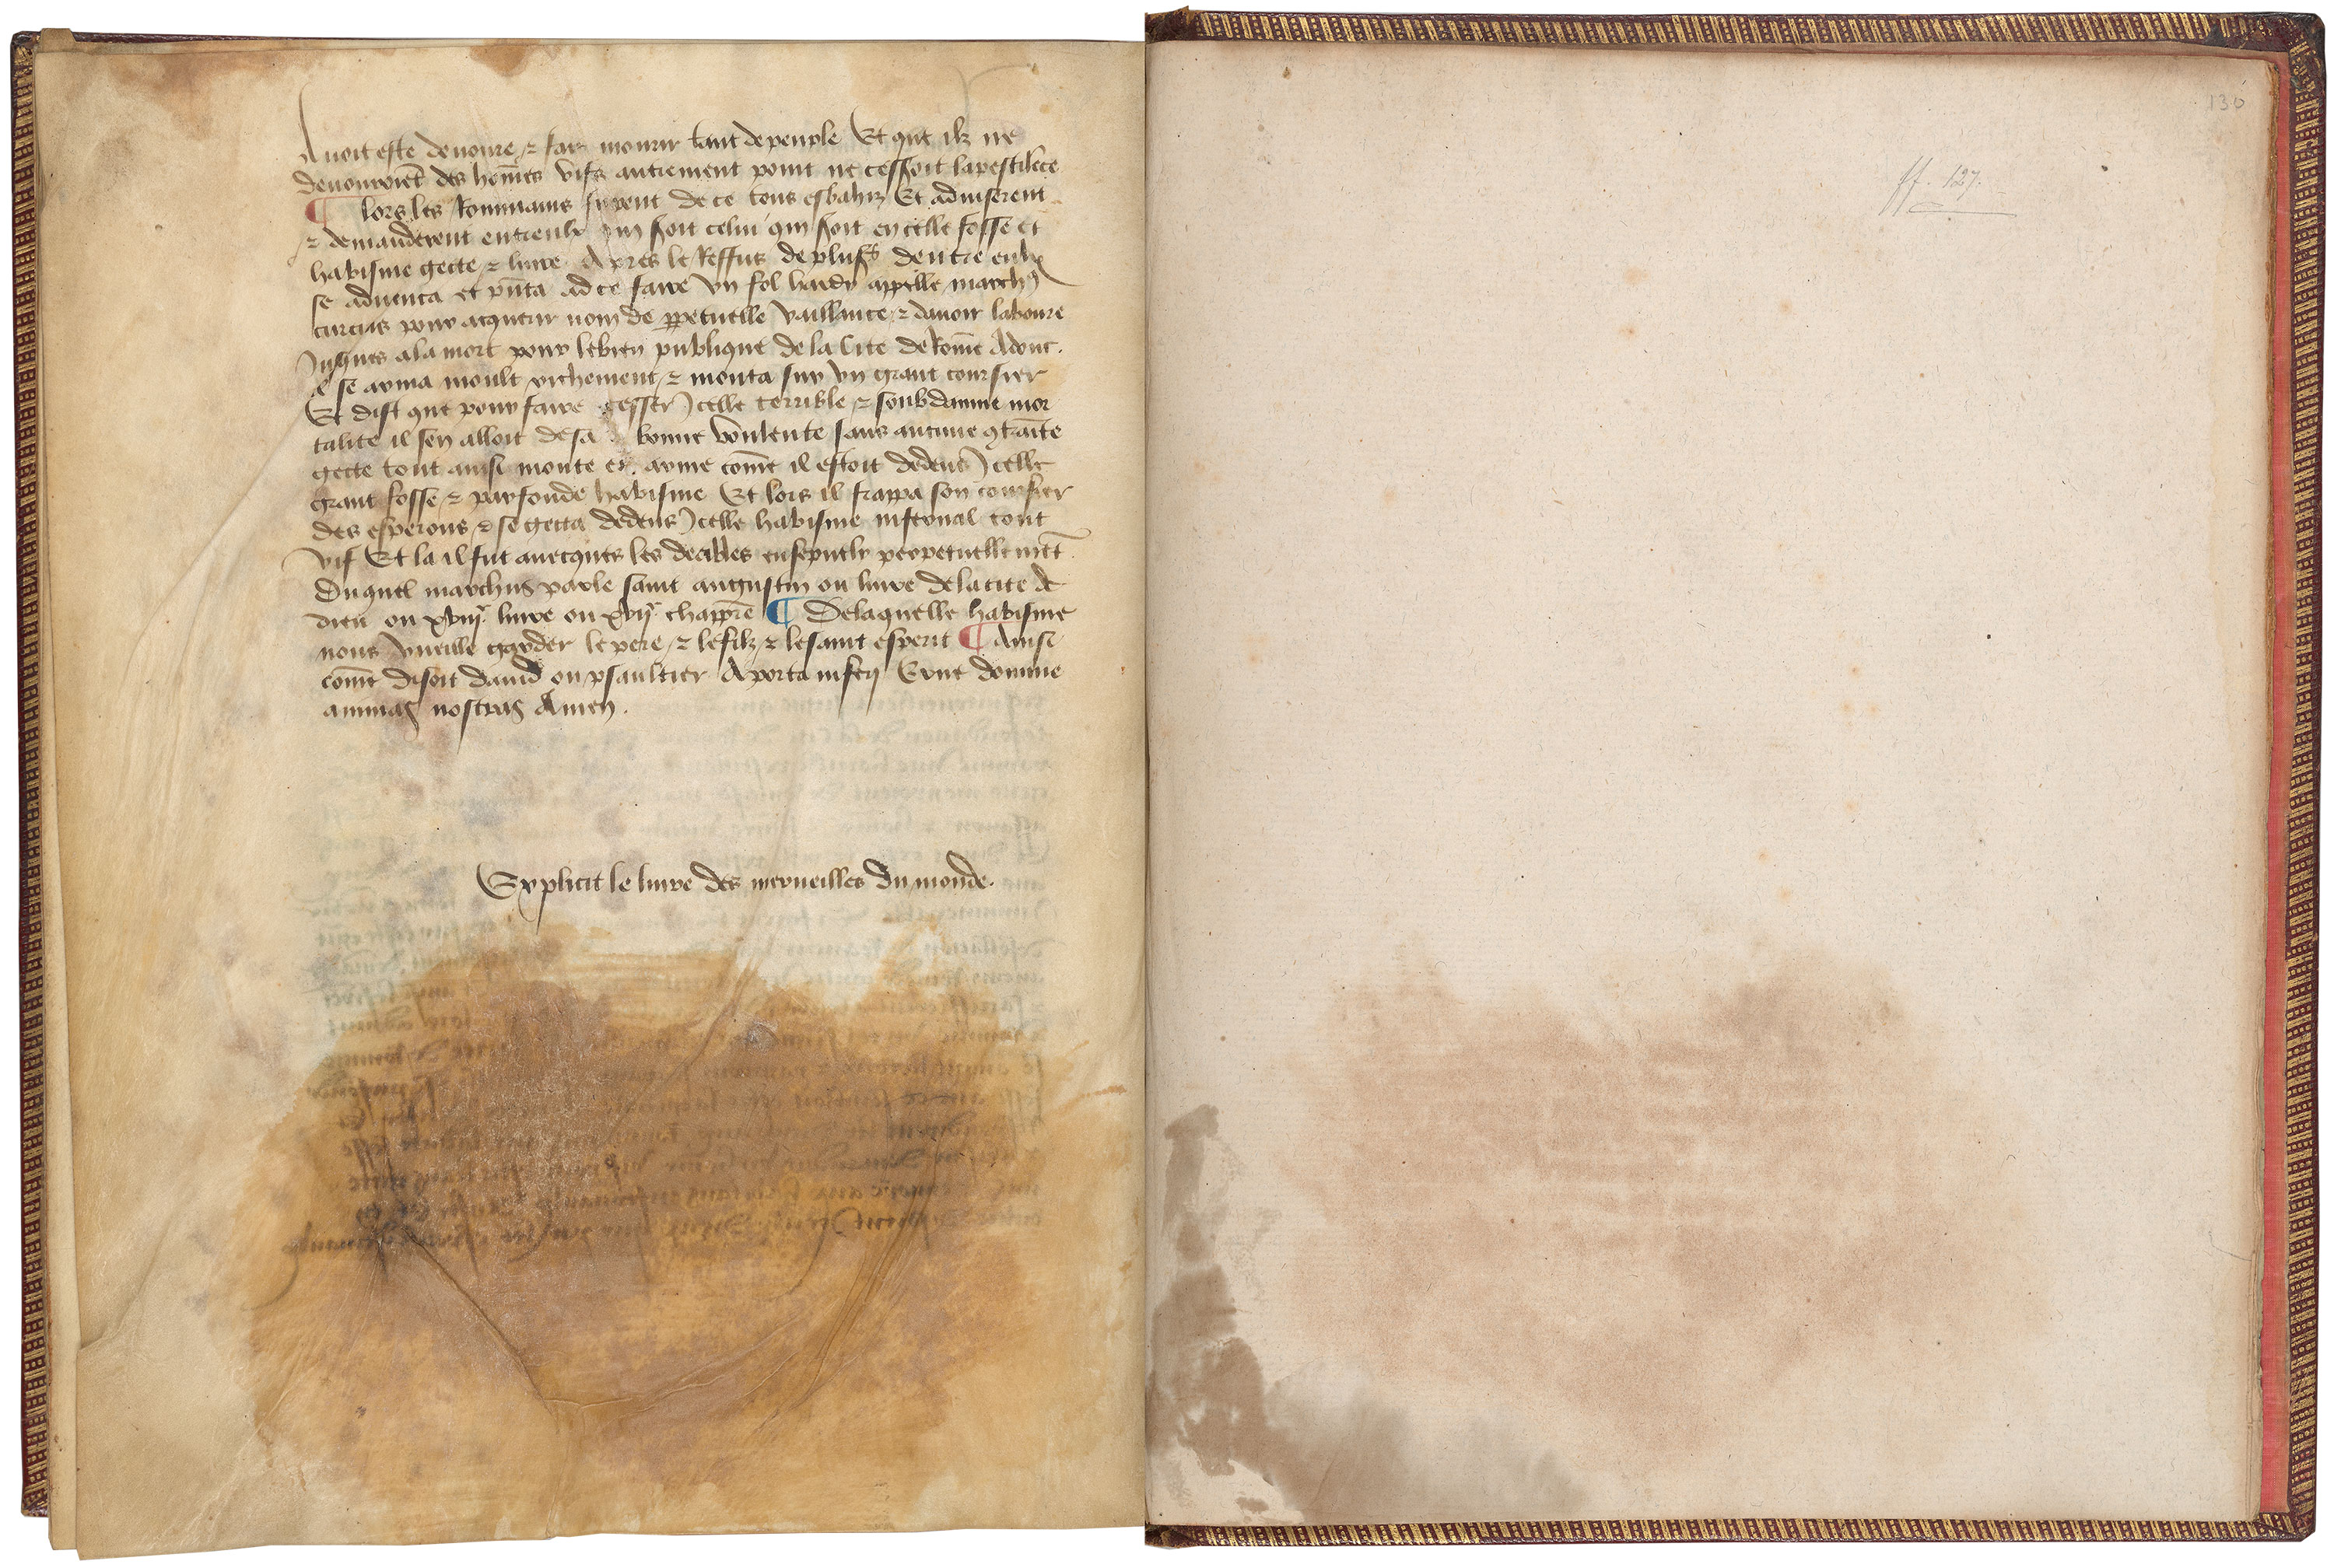 Avoit este devoure ⁊ fait mourir tant de peuple Et que ilz ne
devouroiēt des hōmes vifz autrement point ne cessoit la pestilēce
¶ lors les Rommains furent de ce tous esbahiz Et adviserent
⁊ demanderent entreulx qui seroit celui qui seroit en celle fosse et
habisme gecte ⁊ livre Apres le Reffus de plusrs dentre eulx
se adventa et pñta ad ce faire un fol hardy appelle marchus
curcius pour acquerir nom de ꝑpetuelle vaillance ⁊ davoir laboure
Jusques a la mort pour le bien publique de la Cite de Rome Adonc
il se arma moult richement ⁊ monta sur un grant coursier
Et dist que pour faire cesser Icelle terrible ⁊ soubdaine mor
talite il sen alloit de sa bonne voulente sans aucune 9traīte
gecte tout ainsi monte et arme cōme il estoit dedens Icelle
grant fosse ⁊ parfonde habisme Et lors il frappa son coursier
des esperons ⁊ se gecta dedens Icelle habisme infernal tout
vif Et la il fut avecques les deables ensepvely perpetuellemēt
Duquel marchus parle saint augustin ou livre de la cite de
dieu ou xviije livre ou xvije chappre ¶ De laquelle habisme
nous vueille garder le pere ⁊ le filz ⁊ le saint esperit ¶ Ainsi
cōme disoit david ou psaultier A porta inferi Erue domine
animas nostras Amen.
Explicit le livre des merveilles du monde.
130
ff. 127.